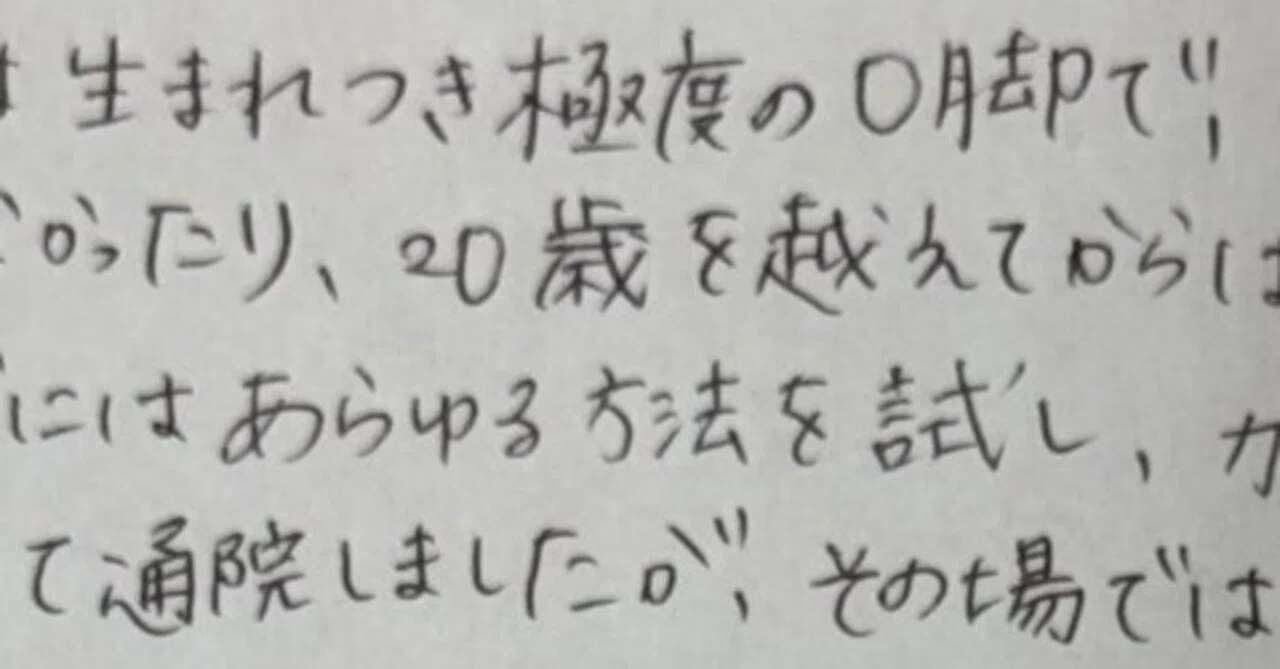 生まれつき極度のO脚で、
かったり、20歳を越えてからは
にはあらゆる方法を試し、カ
て通院しましたが、その場では